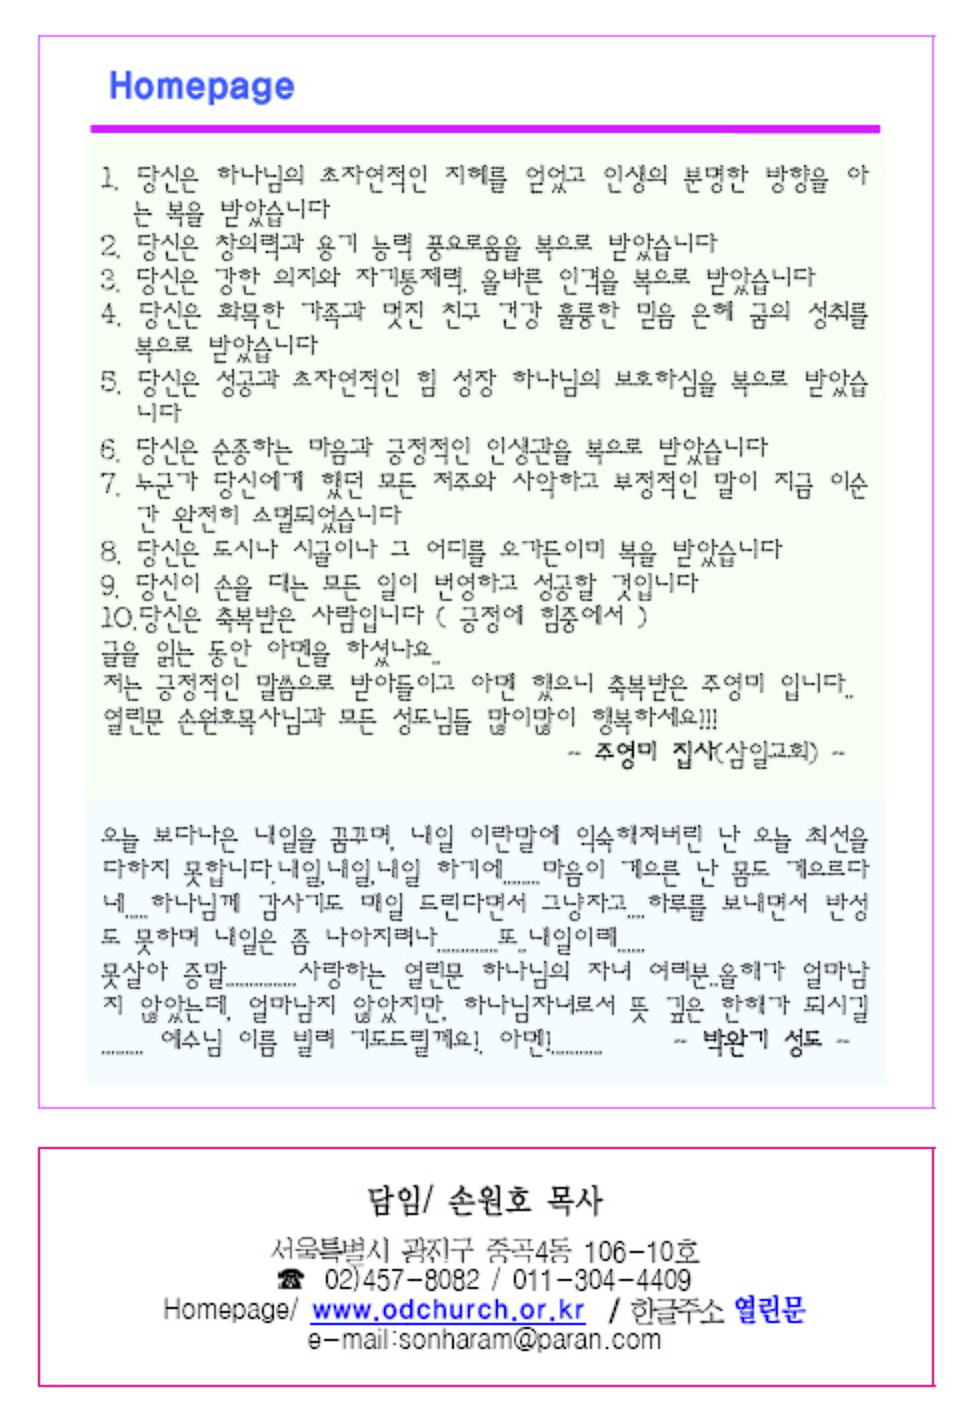 Homepage
1. 당신은 하나님의 초자연적인 지혜를 얻었고 인생의 분명한 방향을 아
는 복을 받았습니다
2. 당신은 창의력과 용기 능력 풍요로움을 복으로 받았습니다
3. 당신은 강한 의지와 자기통제력, 올바른 인격을 복으로 받았습니다
4. 당신은 화목한 가족과 멋진 친구 건강 훌륭한 믿음 은혜 꿈의 성취를
복으로 받았습니다
5. 당신은 성공과 초자연적인 힘 성장 하나님의 보호하심을 복으로 받았습
니다
6. 당신은 순종하는 마음과 긍정적인 인생관을 복으로 받았습니다
7. 누군가 당신에게 했던 모든 저주와 사악하고 부정적인 말이 지금 이순
간 완전히 소멸되었습니다
8. 당신은 도시나 시골이나 그 어디를 오가든이미 복을 받았습니다
9. 당신이 손을 대는 모든 일이 번영하고 성공할 것입니다
10.당신은 축복받은 사람입니다 ( 긍정에 힘중에서 )
글을 읽는 동안 아멘을 하셨나요..
저는 긍정적인 말씀으로 받아들이고 아멘 했으니 축복받은 주영미 입니다..
열린문 손원호목사님과 모든 성도님들 많이많이 행복하세요!!!
~ 주영미 집사(삼일교회) ~
오늘 보다나은 내일을 꿈꾸며, 내일 이란말에 익숙해져버린 난 오늘 최선을
다하지 못합니다.내일,내일,내일 하기에........마음이 게으른 난 몸도 게으르다
네.....하나님께 감사기도 매일 드린다면서 그냥자고....하루를 보내면서 반성
도 못하며 내일은 좀 나아지려나.............또..내일이래......
못살아 증말...............사랑하는 열린문 하나님의 자녀 여러분..올해가 얼마남
지 않았는데, 얼마남지 않았지만, 하나님자녀로서 뜻 깊은 한해가 되시길
......... 예수님 이름 빌려 기도드릴께요!, 아멘!........... ~ 박완기 성도 ~
담임/ 손원호 목사
서울특별시 광진구 중곡4동 106-10호
☎ 02)457-8082 / 011-304-4409
Homepage/ www.odchurch.or.kr / 한글주소 열린문
e-mail:sonharam@paran.com